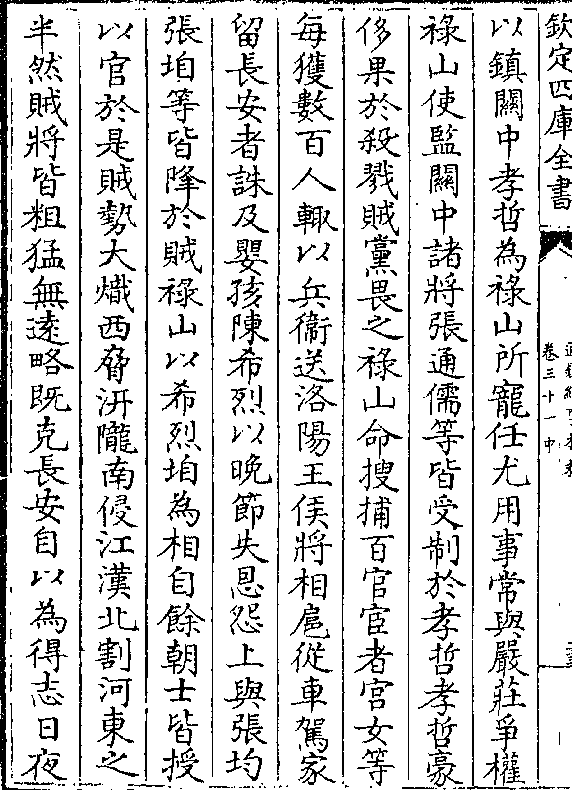 欽定四庫全書
卷三十一中
以鎮關中孝哲為祿山所寵任尤用事常與嚴莊爭權
祿山使監關中諸將張通儒等皆受制於孝哲孝哲豪
侈果於殺戮賊黨畏之祿山命搜捕百官宦者宮女等
每獲數百人輙以兵衞送洛陽王侯將相扈從車駕家
留長安者誅及嬰孩陳希烈以晚節失恩怨上與張均
張垍等皆降於賊祿山以希烈垍為相自餘朝士皆授
以官於是賊勢大熾西脅汧隴南侵江漢北割河東之
半然賊將皆粗猛無遠略既克長安自以為得志日夜